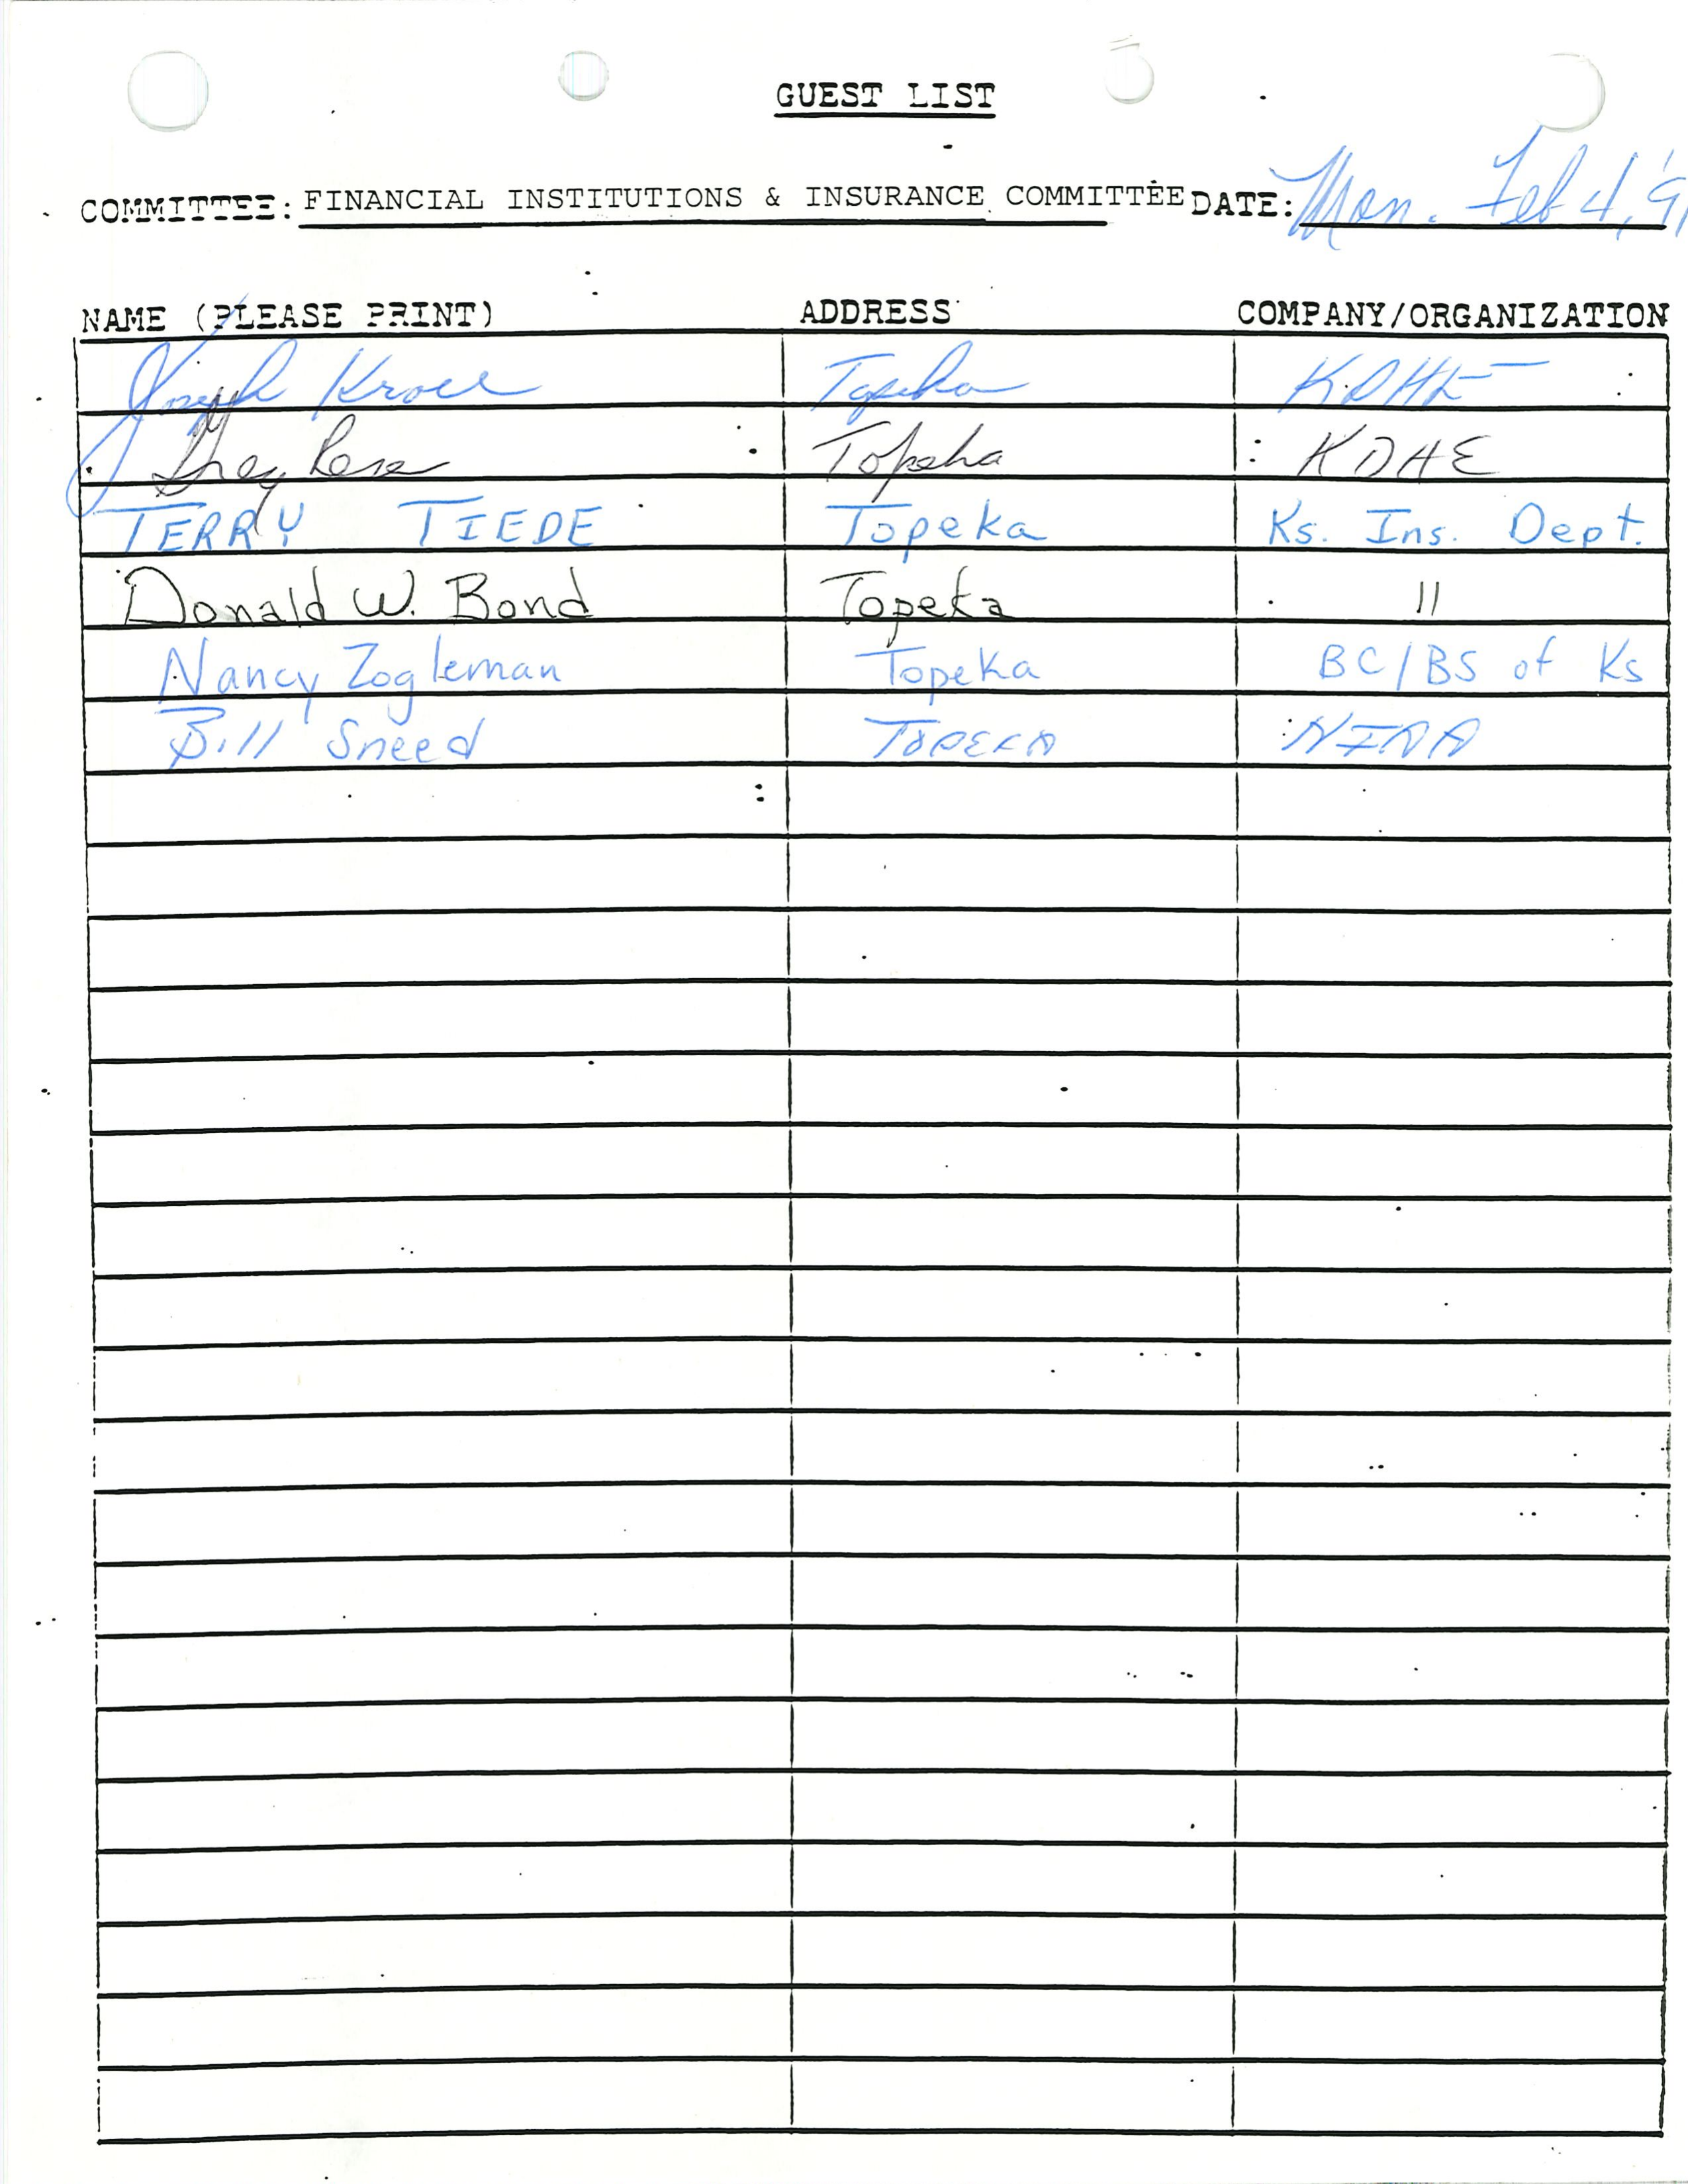 GUEST LIST
COMMITTEE: FINANCIAL INSTITUTIONS & INSURANCE COMMITTEE DATE: Mon. Feb 4, '91
NAME (PLEASE PRINT) ADDRESS COMPANY/ORGANIZATION
Joseph Kroll Topeka KDHE
Greg Reser Topeka KDHE
TERRY TIEDE Topeka Ks. Ins. Dept.
Donald W. Bond Topeka "
Nancy Zogleman Topeka BC/BS of Ks
Bill Sneed TOPEKA